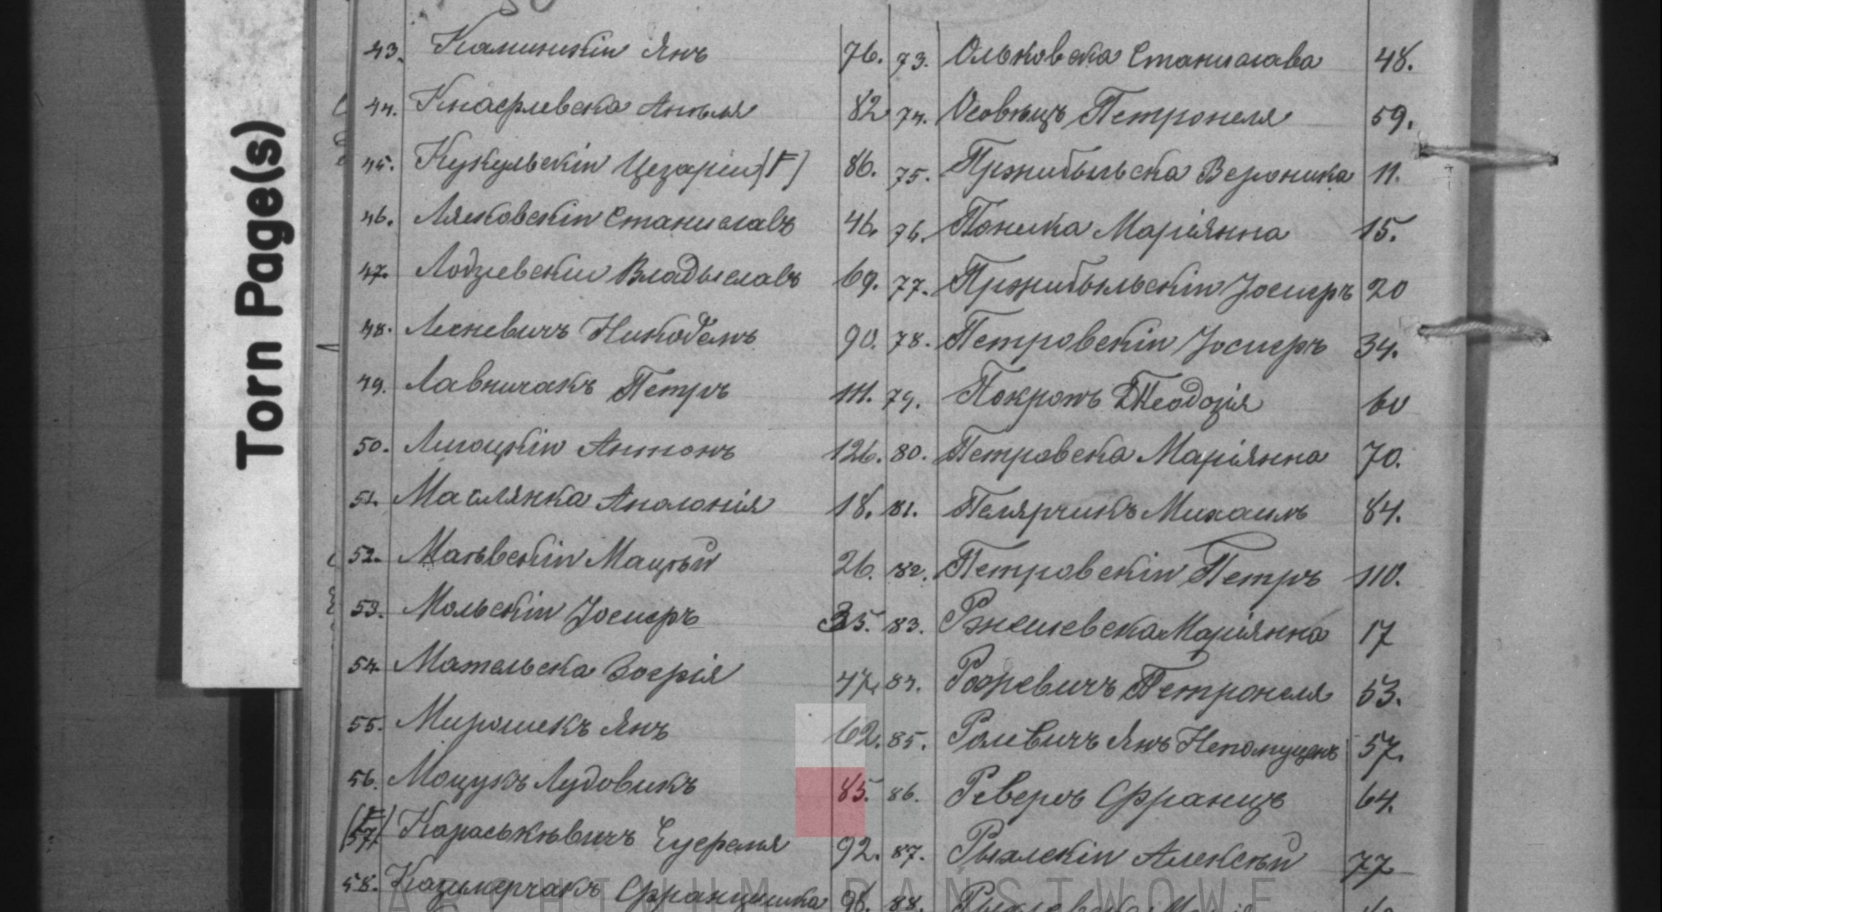 Torn Page(s)
43. Калинскій Янъ 76.
44. Кнаефлевска Анѣля 82
45. Кукульскій Цезарій (F) 86.
46. Лясковскій Станиславъ 46.
47. Лодзевскій Владыславъ 69.
48. Лесневичъ Никодемъ 90.
49. Лавничакъ Петръ 111.
50. Лигоцкій Антонъ 126.
51. Маслянка Аполонія 18.
52. Маѣвскій Мацѣй 26.
53. Мольскій Іосифъ 35.
54. Мательска Зофія 47.
55. Мирошекъ Янъ 62.
56. Моцукъ Лудовикъ 85.
(F) 57. Караськѣвичъ Еуфемія 92.
58. Казмерчакъ Францишка 98.
73. Ольковска Станислава 48.
74. Осовѣцъ Петронеля 59.
75. Пржибыльска Вероника 11.
76. Поника Маріянна 15.
77. Пржибыльскій Іосифъ 20
78. Петровскій Іосифъ 34.
79. Теодозія 60
80. Петровска Маріянна 70.
81. Пелярчикъ Михаилъ 84.
82. Петровскій Петръ 110.
83. Ржешевска Маріянна 17
84. Петронеля 53.
85. Ролевичъ Янъ Непомуценъ 57.
86. Реверъ Францъ 64.
87. Рыхлскій Алексѣй 77
88.
ARCHIWUM PANSTWOWE